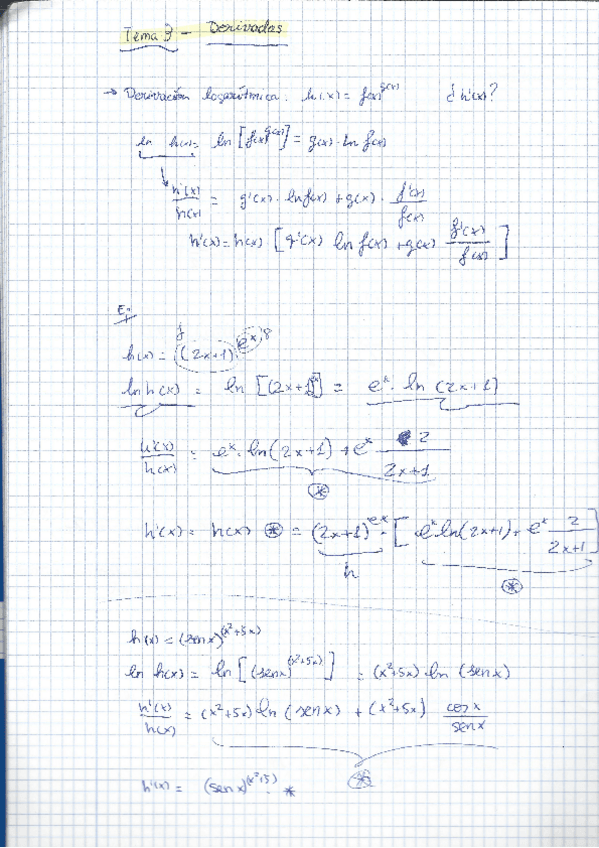 Tema 9 - Derivadas
→ Derivación logarítmica. h(x) = f(x)^g(x) ¿h'(x)?
ln h(x) = ln [f(x)^g(x)] = g(x) · ln f(x)
h'(x)/h(x) = g'(x) · ln f(x) + g(x) · f'(x)/f(x)
h'(x) = h(x) [g'(x) ln f(x) + g(x) f'(x)/f(x)]
Ej
f g
h(x) = (2x+1)^e^x
ln h(x) = ln [(2x+1)^e^x] = e^x · ln (2x+1)
h'(x)/h(x) = e^x · ln(2x+1) + e^x 2/2x+1
⊛
h'(x) = h(x) ⊛ = (2x+1)^e^x · [e^x ln(2x+1) + e^x 2/2x+1]
h ⊛
h(x) = (sen x)^(x²+5x)
ln h(x) = ln [(sen x)^(x²+5x)] = (x²+5x) ln (sen x)
h'(x)/h(x) = (x²+5x) ln (sen x) + (x²+5x) cos x/sen x
⊛
h'(x) = (sen x)^(x²+5) · *